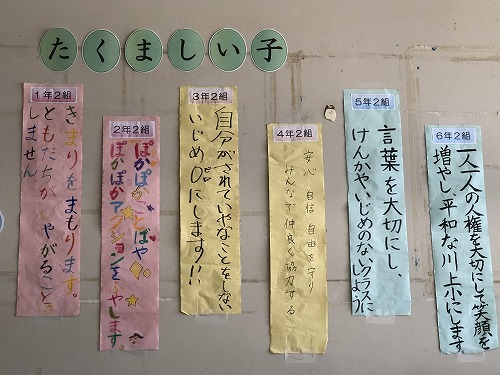 たくましい子
1年2組
きまりをまもります。
ともだちがいやがることを
しません
2年2組
ぽかぽかことばや
ぽかぽかアクションをふやします。
3年2組
自分がされていやなことをしない
いじめ0にします!!
ゼロ
4年2組
安心 自信 自由を守り
みんなで仲良く協力する
5年2組
言葉を大切にし、
けんかやいじめのないクラスに
しよう
6年2組
一人一人の人権を大切にして笑顔を
増やし平和な川上小にします